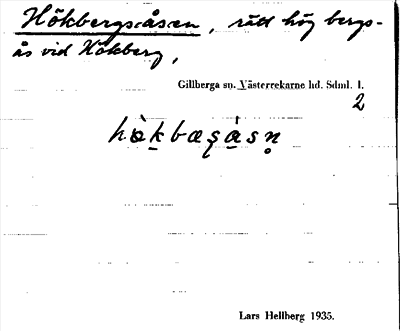 Hökbergsåsen, rätt hög bergs-
ås vid Hökberg,
Gillberga sn. Västerrekarne hd. Sdml. l.
2
hàkbæʂásn̥
Lars Hellberg 1935.